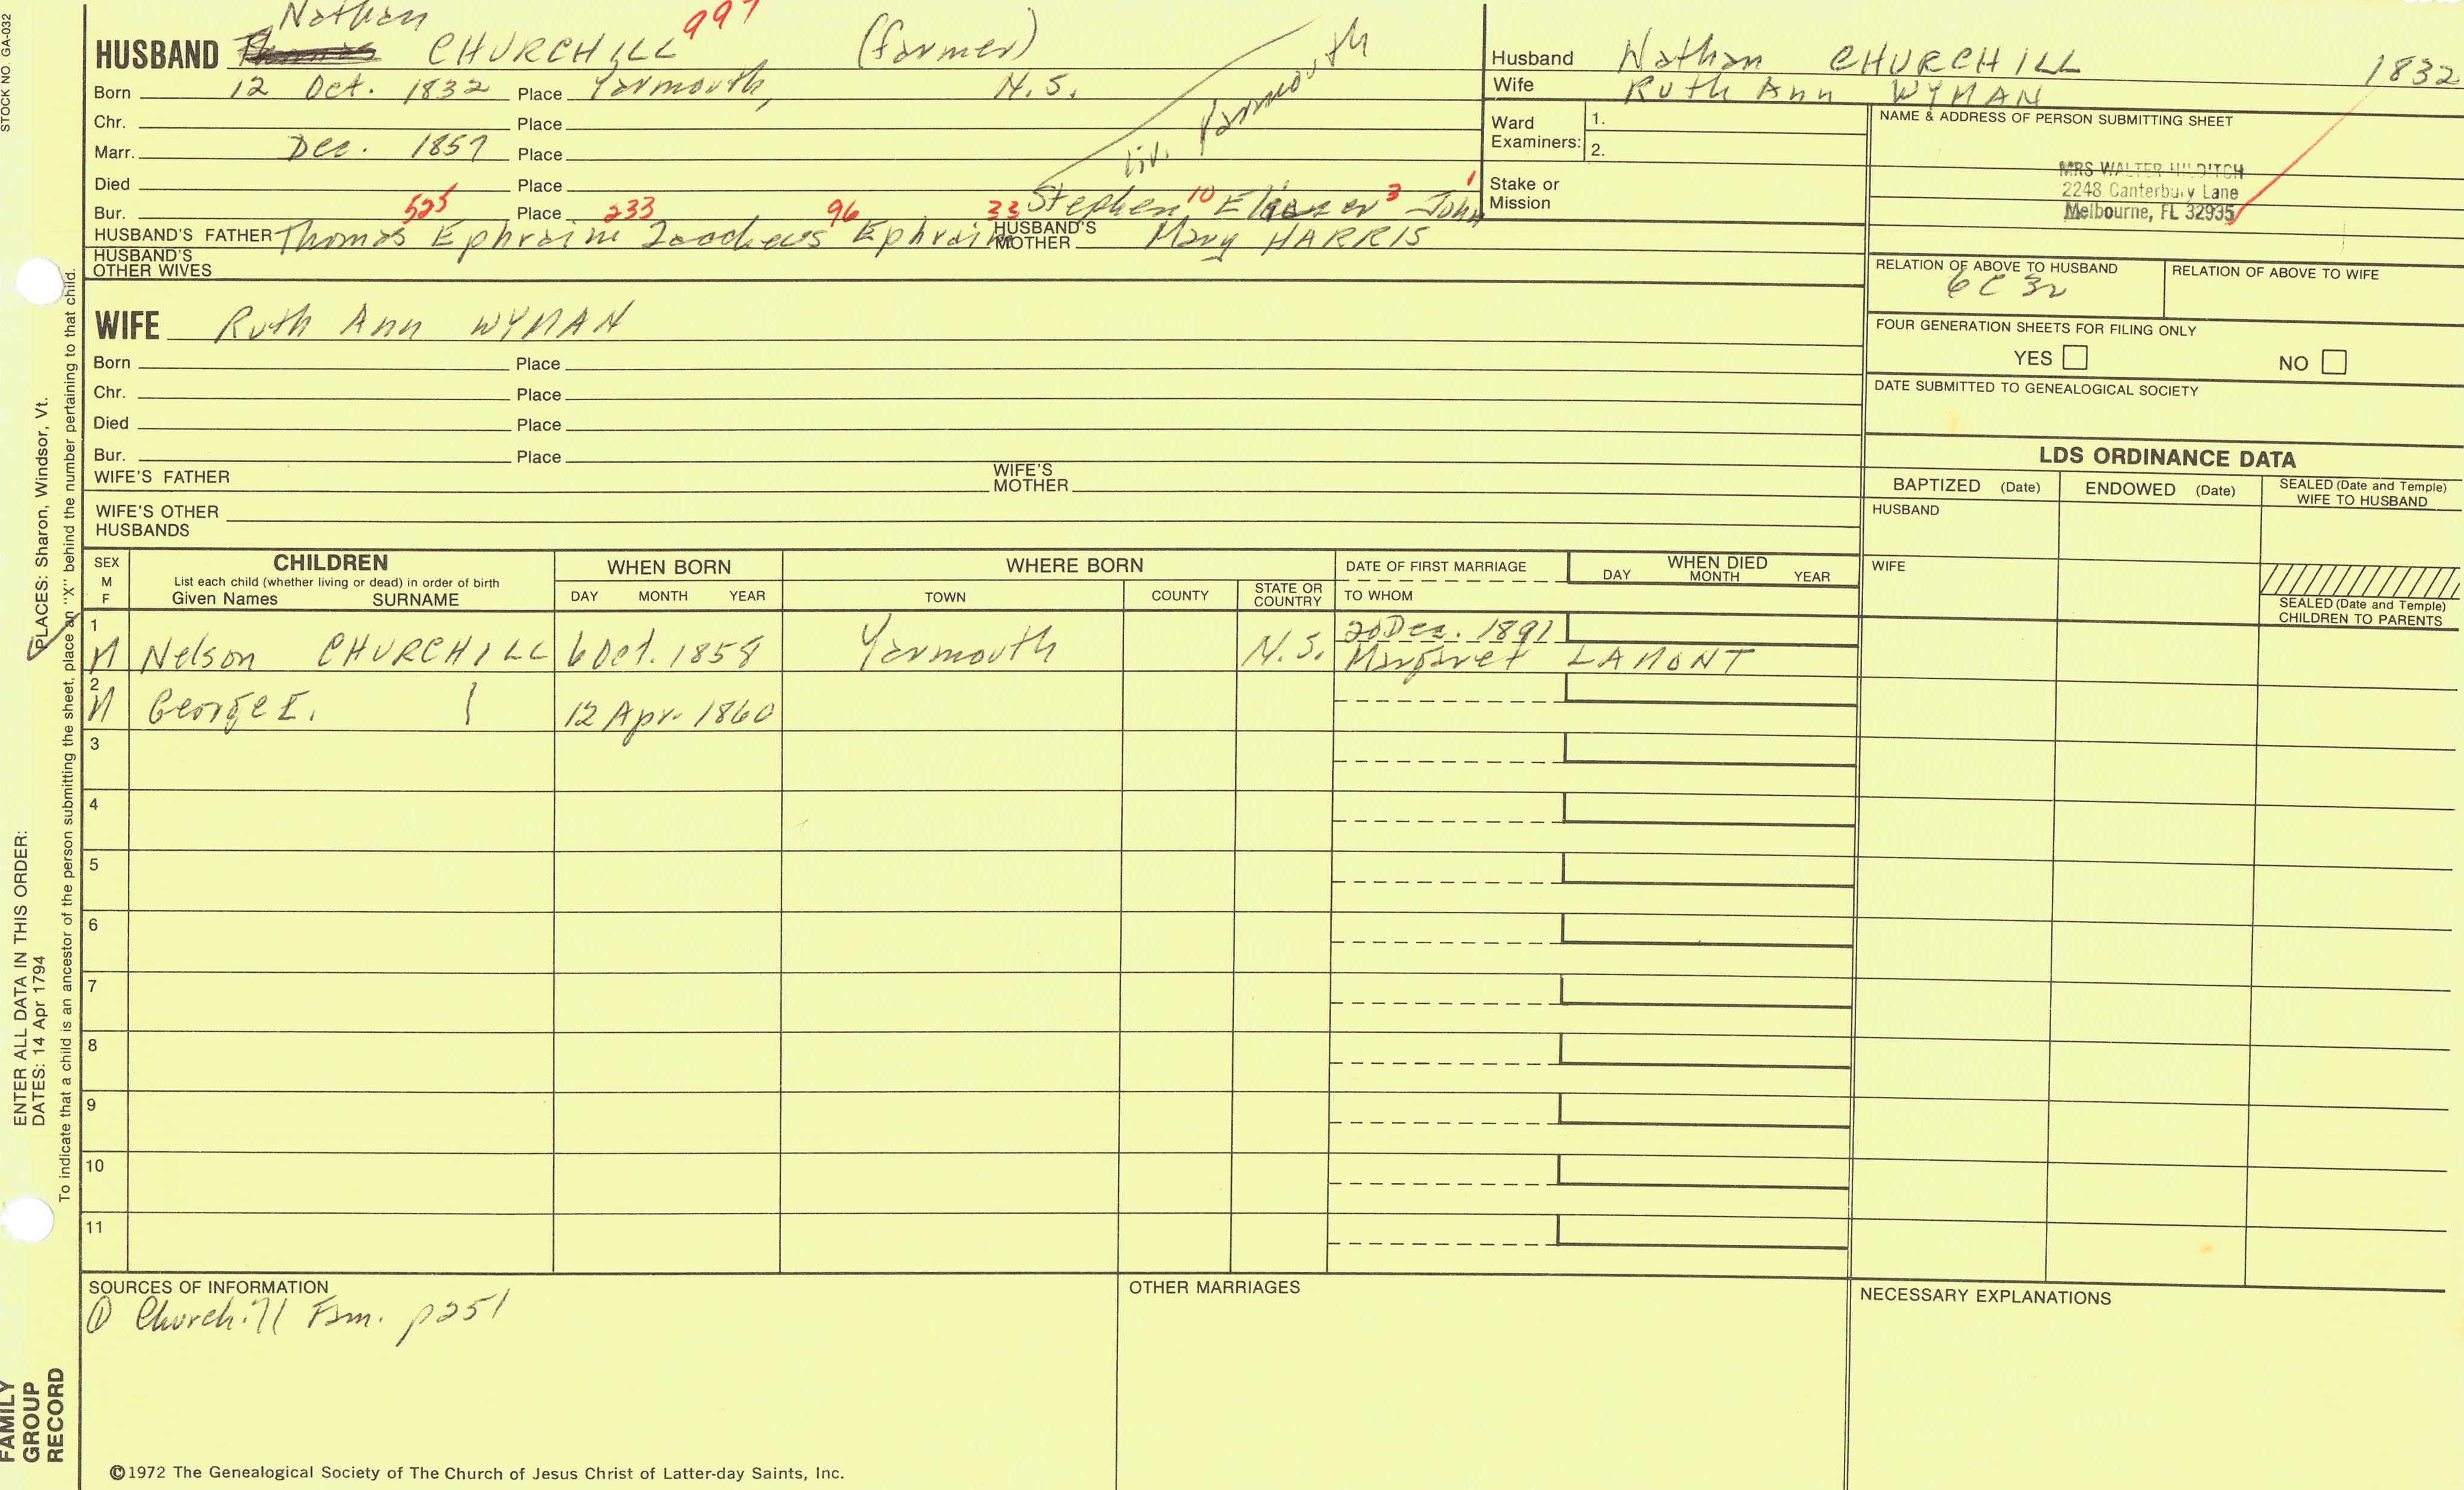 STOCK NO. GA-032
Nathan 997
HUSBAND CHURCHILL (farmer)
Born 12 Oct. 1832 Place Yarmouth, N.S.
Chr. Place
Marr. Dec. 1857 Place
liv. Yarmouth
Died Place
Bur. Place
525 233 96 33 Stephen 10 Eleazer 3 John 1
HUSBAND'S FATHER Thomas Ephraim Zaacheus Ephraim HUSBAND'S MOTHER Mary HARRIS
HUSBAND'S OTHER WIVES
WIFE Ruth Ann WYMAN
Born Place
Chr. Place
Died Place
Bur. Place
WIFE'S FATHER WIFE'S MOTHER
WIFE'S OTHER HUSBANDS
Husband Nathan CHURCHILL 1832
Wife Ruth Ann WYMAN
Ward Examiners: 1.
2.
Stake or Mission
NAME & ADDRESS OF PERSON SUBMITTING SHEET
MRS WALTER HILDITCH
2248 Canterbury Lane
Melbourne, FL 32935
RELATION OF ABOVE TO HUSBAND RELATION OF ABOVE TO WIFE
6C3r
FOUR GENERATION SHEETS FOR FILING ONLY
YES NO
DATE SUBMITTED TO GENEALOGICAL SOCIETY
LDS ORDINANCE DATA
BAPTIZED (Date) ENDOWED (Date) SEALED (Date and Temple) WIFE TO HUSBAND
HUSBAND
WIFE
SEALED (Date and Temple) CHILDREN TO PARENTS
SEX M F
CHILDREN
List each child (whether living or dead) in order of birth
Given Names SURNAME
WHEN BORN
DAY MONTH YEAR
WHERE BORN
TOWN COUNTY STATE OR COUNTRY
DATE OF FIRST MARRIAGE
TO WHOM
WHEN DIED
DAY MONTH YEAR
1 M Nelson CHURCHILL 6 Oct. 1858 Yarmouth N.S. 20 Dec. 1891
Margaret LAMONT
2 M George E. 12 Apr. 1860
3
4
5
6
7
8
9
10
11
SOURCES OF INFORMATION
① Churchill Fam. p251
OTHER MARRIAGES
NECESSARY EXPLANATIONS
©1972 The Genealogical Society of The Church of Jesus Christ of Latter-day Saints, Inc.
FAMILY GROUP RECORD
ENTER ALL DATA IN THIS ORDER:
DATES: 14 Apr 1794
PLACES: Sharon, Windsor, Vt.
To indicate that a child is an ancestor of the person submitting the sheet, place an "X" behind the number pertaining to that child.